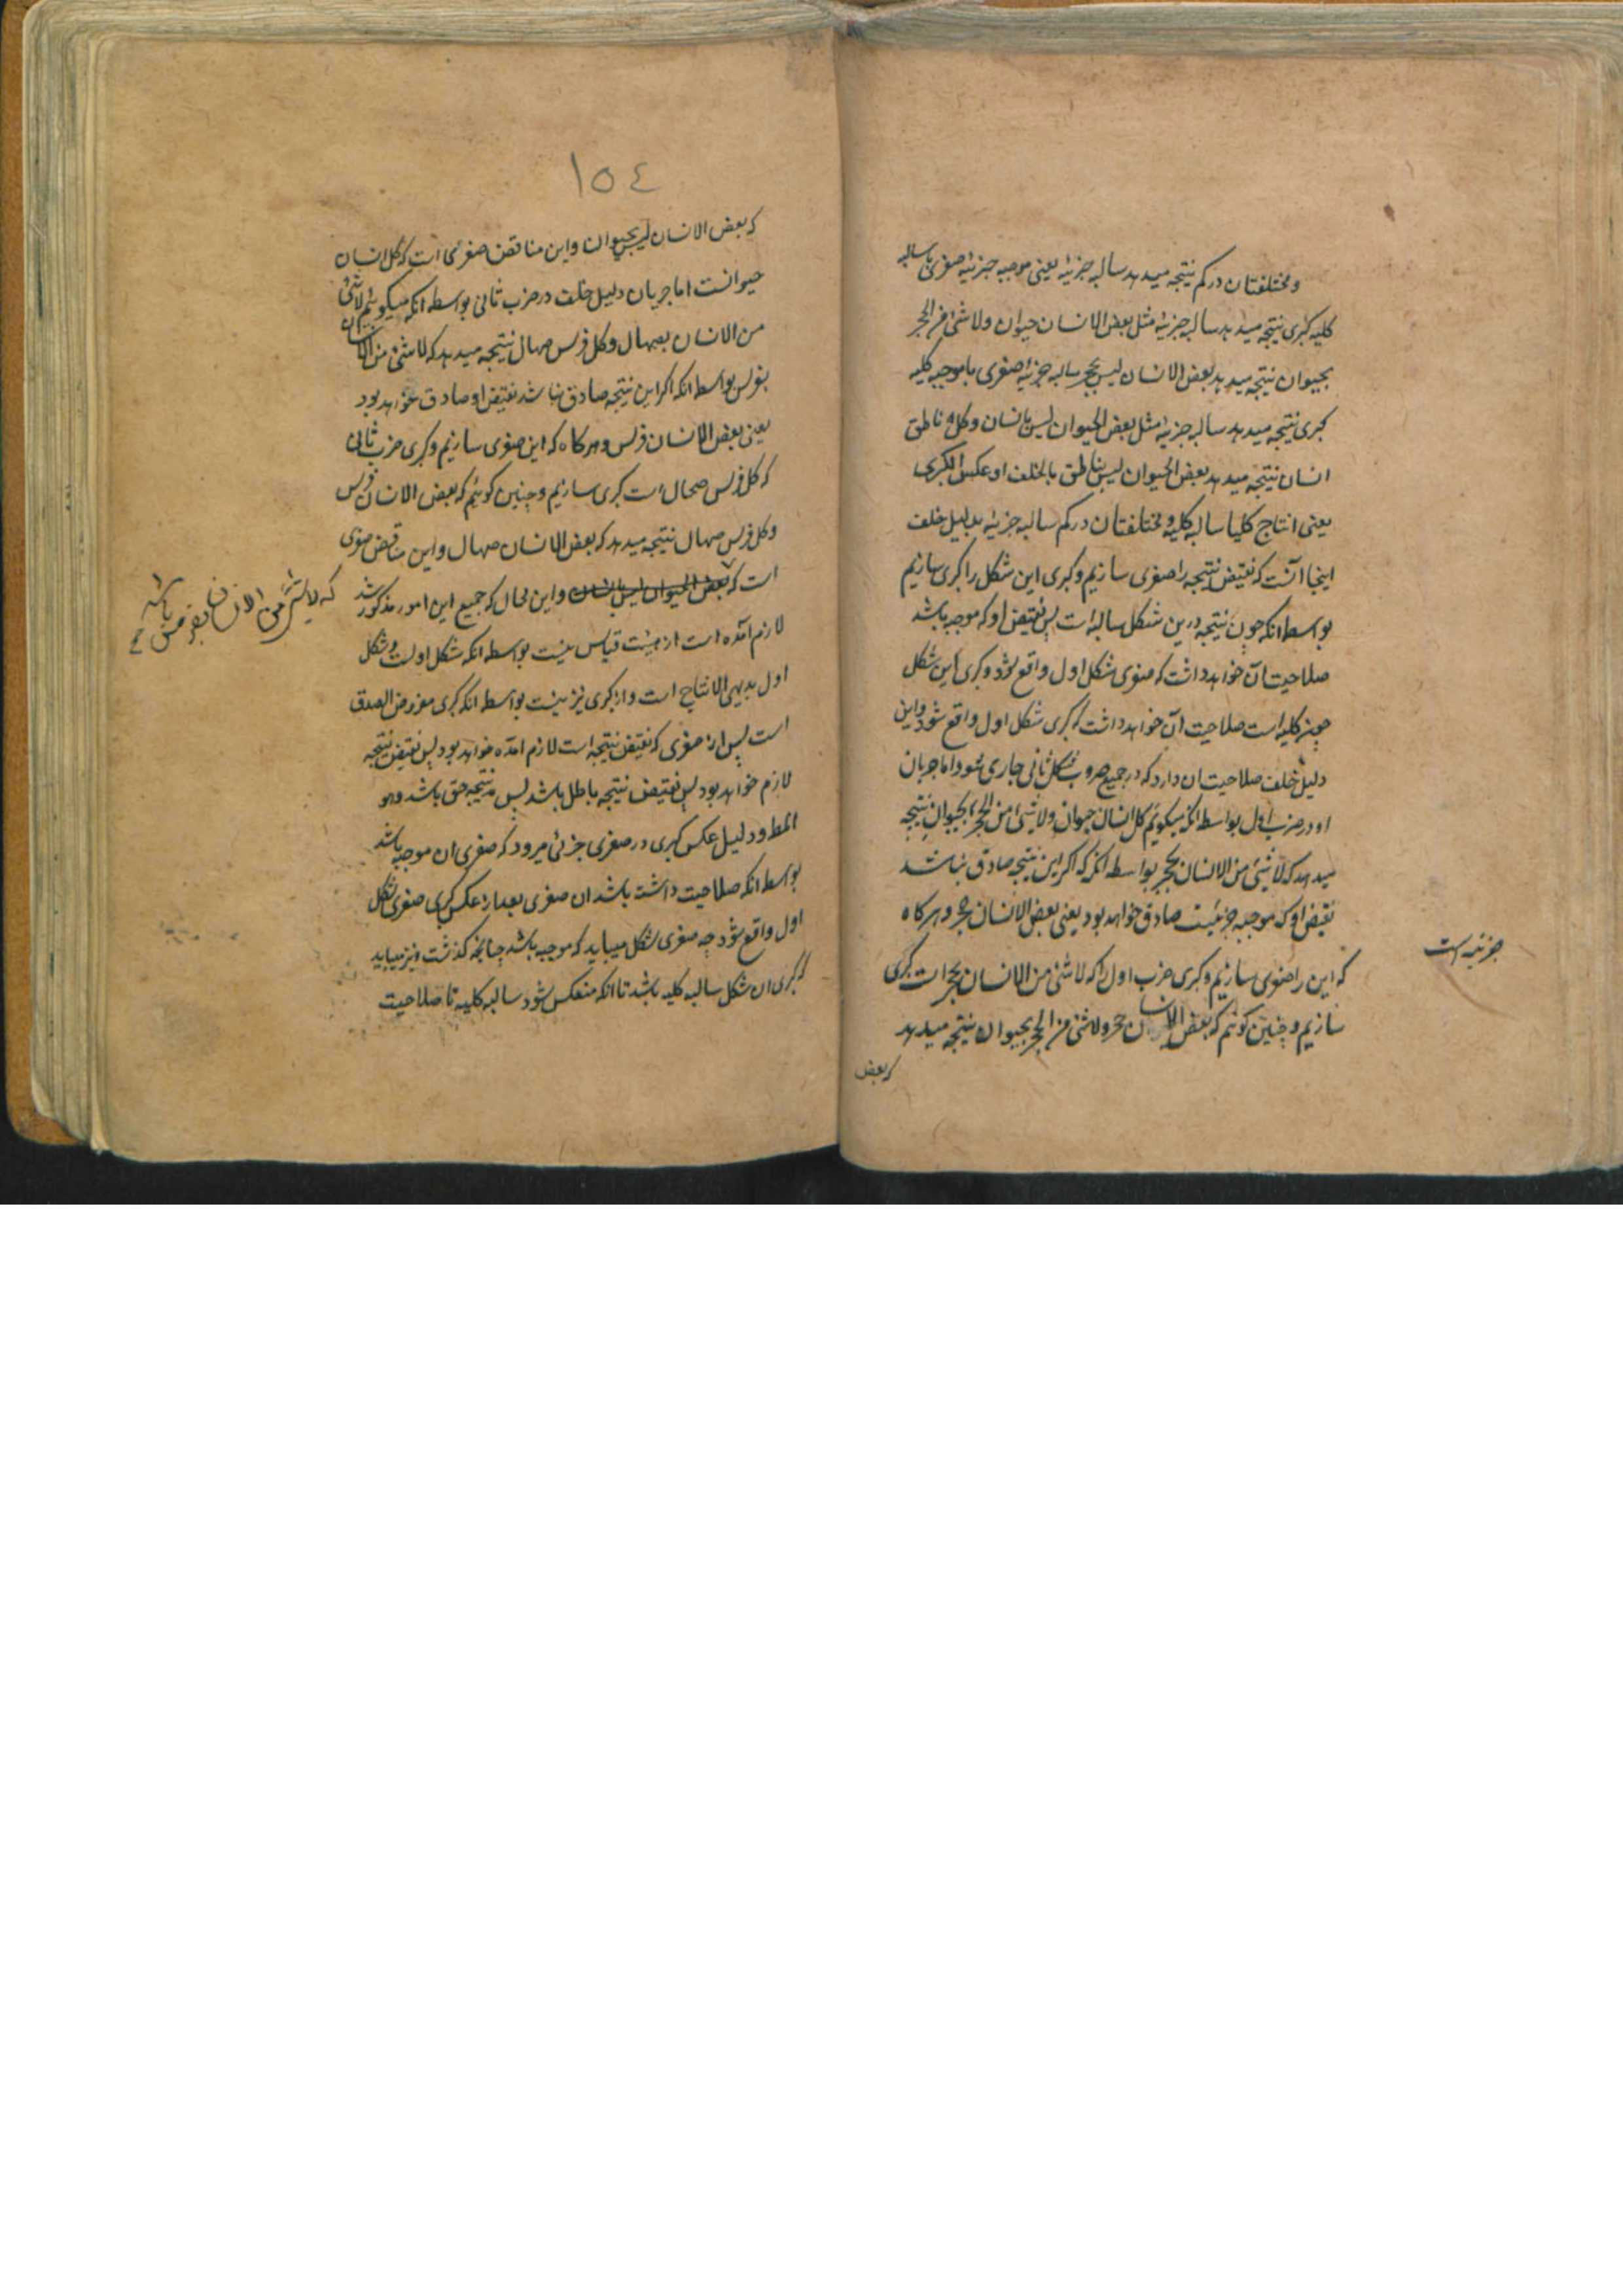 و مختلفتان در کم نتیجه میدهد سالبه جزئیه یعنی موجبه جزئیه صغری با سالبه
کلیه کبری نتیجه میدهد سالبه جزئیه مثل بعض الانسان حیوان ولاشئ من الحجر
بحیوان نتیجه میدهد بعض الانسان لیس بحجر سالبه جزئیه صغری با موجبه کلیه
کبری نتیجه میدهد سالبه جزئیه مثل بعض الحیوان لیس بانسان وکل ناطق
انسان نتیجه میدهد بعض الحیوان لیس بناطق بالخلف او عکس الکبری
یعنی انتاج کلیتا سالبه کلیه و مختلفتان در کم سالبه جزئیه بدلیل خلف
اینجا آنست که نقیض نتیجه را صغری سازیم و کبری این شکل را کبری سازیم
بواسطه انکه چون نتیجه درین شکل سالبه است پس نقیض او که موجبه باشد
صلاحیت آن خواهد داشت که صغری شکل اول واقع شود و کبری این شکل
چون کلیه است صلاحیت آن خواهد داشت که کبری شکل اول واقع شود و این
دلیل خلف صلاحیت ان دارد که در جمیع ضروب شکل ثانی جاری شود اما جریان
او در ضرب اول بواسطه انکه میکوئیم کل انسان حیوان ولاشئ من الحجر بحیوان نتیجه
میدهد که لاشئ من الانسان بحجر بواسطه انکه اکر این نتیجه صادق نباشد
نقیض او که موجبه جزئیست صادق خواهد بود یعنی بعض الانسان حجر و هرکاه
جزئیه است
که این را صغری سازیم و کبری ضرب اول را که لاشئ من الانسان بحجر است کبری
سازیم و چنین کوئیم که بعض الانسان حجر ولاشئ من الحجر بحیوان نتیجه میدهد
که بعض
١٥٤
که بعض الانسان لیس بحیوان و این مناقض صغری است که کل انسان
حیوانست اما جریان دلیل خلف در ضرب ثانی بواسطه انکه میکوئیم لاشئ
من الانسان بصهال وکل فرس صهال نتیجه میدهد که لاشئ من الانسان
بفرس بواسطه انکه اکر این نتیجه صادق نباشد نقیض او صادق خواهد بود
یعنی بعض الانسان فرس و هرکاه که این صغری سازیم و کبری ضرب ثانی
که کل فرس صهال است کبری سازیم و چنین کوئیم که بعض الانسان فرس
وکل فرس صهال نتیجه میدهد که بعض الانسان صهال و این مناقض صغری
است که بعض الحیوان لیس بانسان و این محال که جمیع این امور مذکور شد
که لاشئ من الانسان بفرس باشد
لازم آمده است از هیئت قیاس نیست بواسطه انکه شکل اولست و شکل
اول بدیهی الانتاج است و از کبری نیز نیست بواسطه انکه کبری مفروض الصدق
است پس از صغری که نقیض نتیجه است لازم امده خواهد بود پس نقیض نتیجه
لازم خواهد بود پس نقیض نتیجه باطل باشد پس نتیجه حق باشد وهو
المط و دلیل عکس کبری در صغری جزئی میرود که صغری ان موجبه باشد
بواسطه انکه صلاحیت داشته باشد ان صغری بعد از عکس کبری صغری شکل
اول واقع شود چه صغری شکل میباید که موجبه باشد چنانچه کذشت و نیز میباید
که کبری ان شکل سالبه کلیه باشد تا انکه منعکس شود سالبه کلیه تا صلاحیت